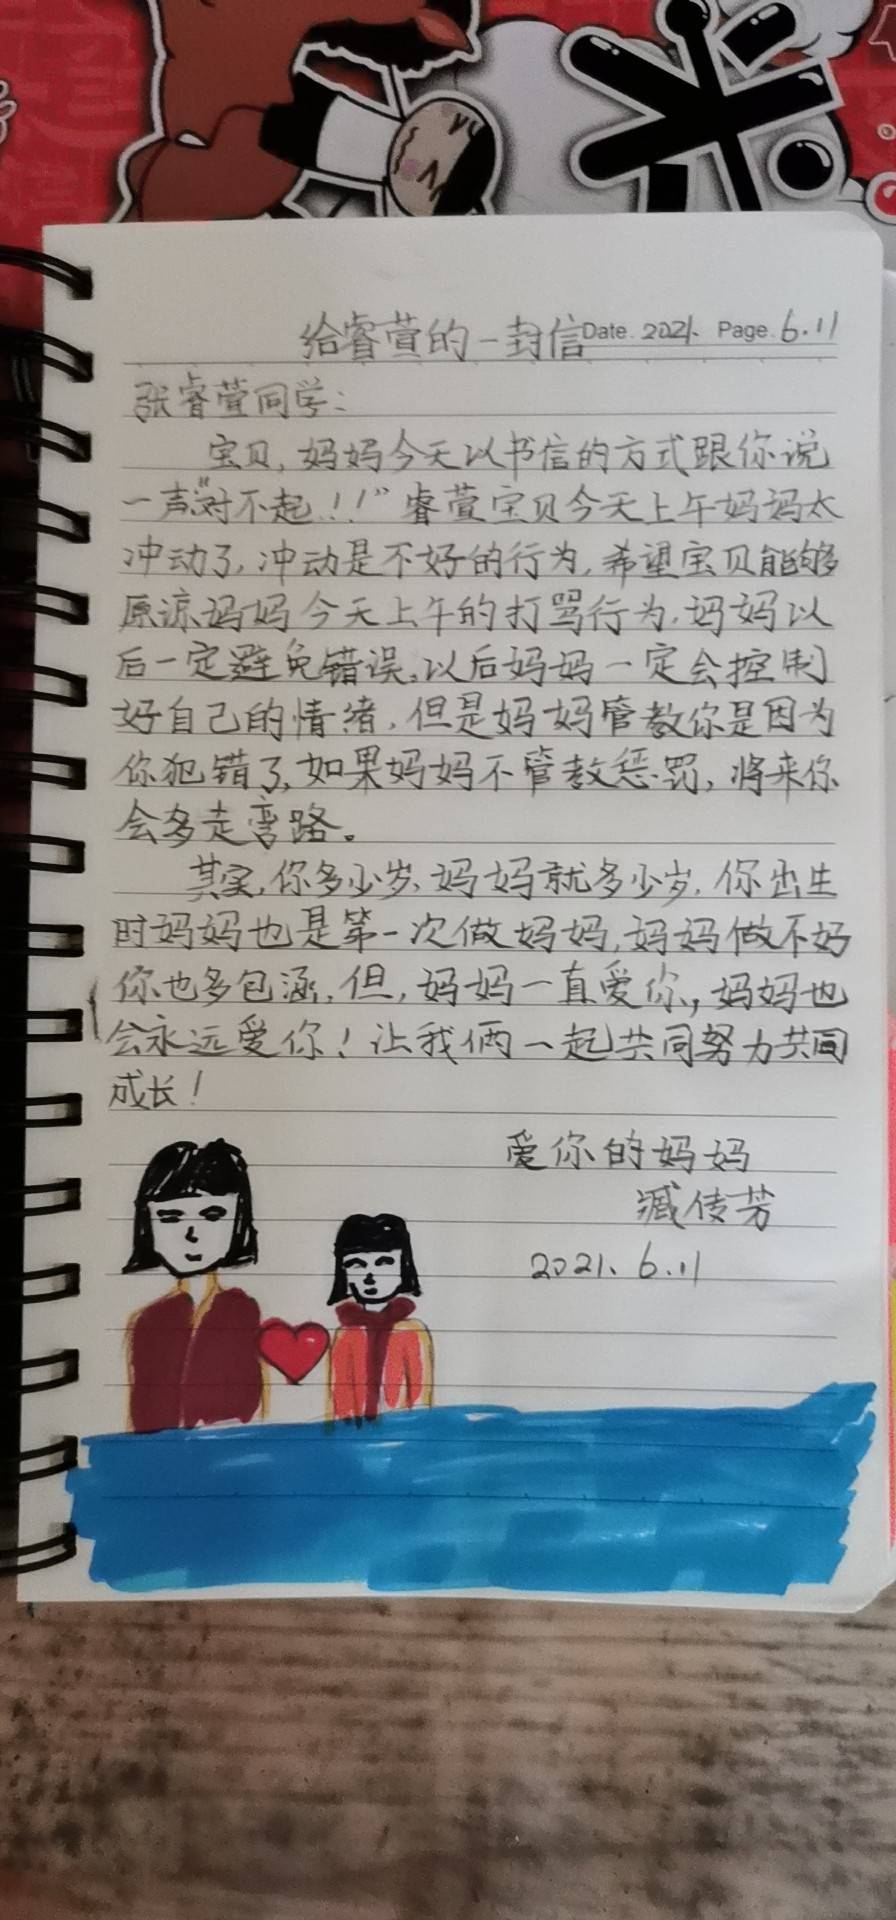 给睿萱的一封信 Date. 2021. Page. 6.11
张睿萱同学：
宝贝，妈妈今天以书信的方式跟你说
一声“对不起！！”睿萱宝贝今天上午妈妈太
冲动了，冲动是不好的行为，希望宝贝能够
原谅妈妈今天上午的打骂行为，妈妈以
后一定避免错误，以后妈妈一定会控制
好自己的情绪，但是妈妈管教你是因为
你犯错了，如果妈妈不管教惩罚，将来你
会多走弯路。
其实，你多少岁、妈妈就多少岁，你出生
时妈妈也是第一次做妈妈，妈妈做不好
你也多包涵，但，妈妈一直爱你，妈妈也
会永远爱你！让我俩一起共同努力共同
成长！
爱你的妈妈
臧传芳
2021.6.11